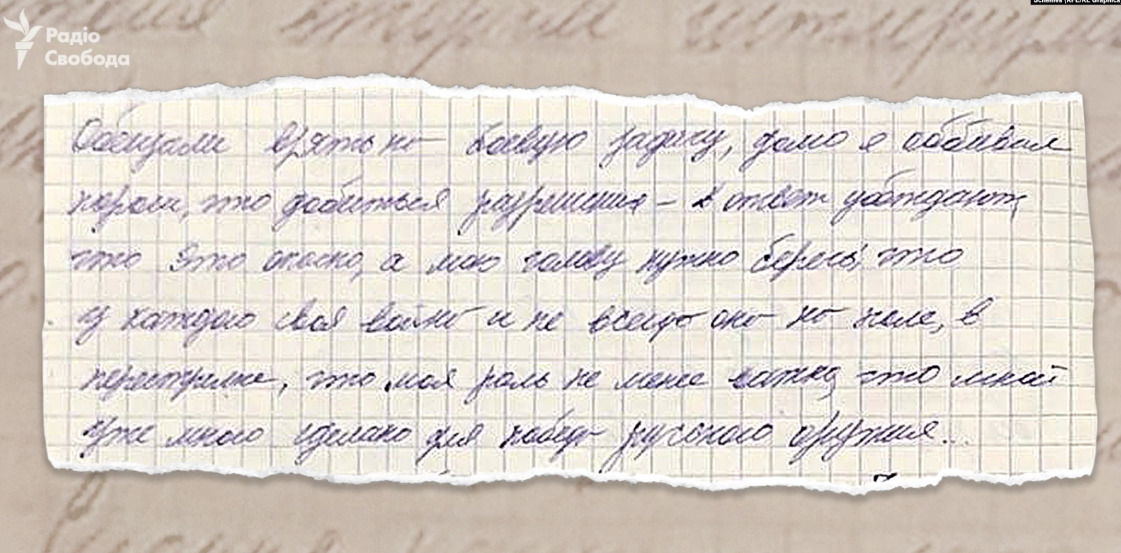 Schemes (RFE/RL Graphics
Радіо
Свобода
Обещали взять на боевую задачу, я оббивал
пороги, что добиться разрешения – в ответ убеждают,
что это опасно, а мою голову нужно беречь, что
у каждого своя война и не всегда она на поле, в
перестрелке, что моя роль не менее важна, что мной
уже много сделано для победы русского оружия...